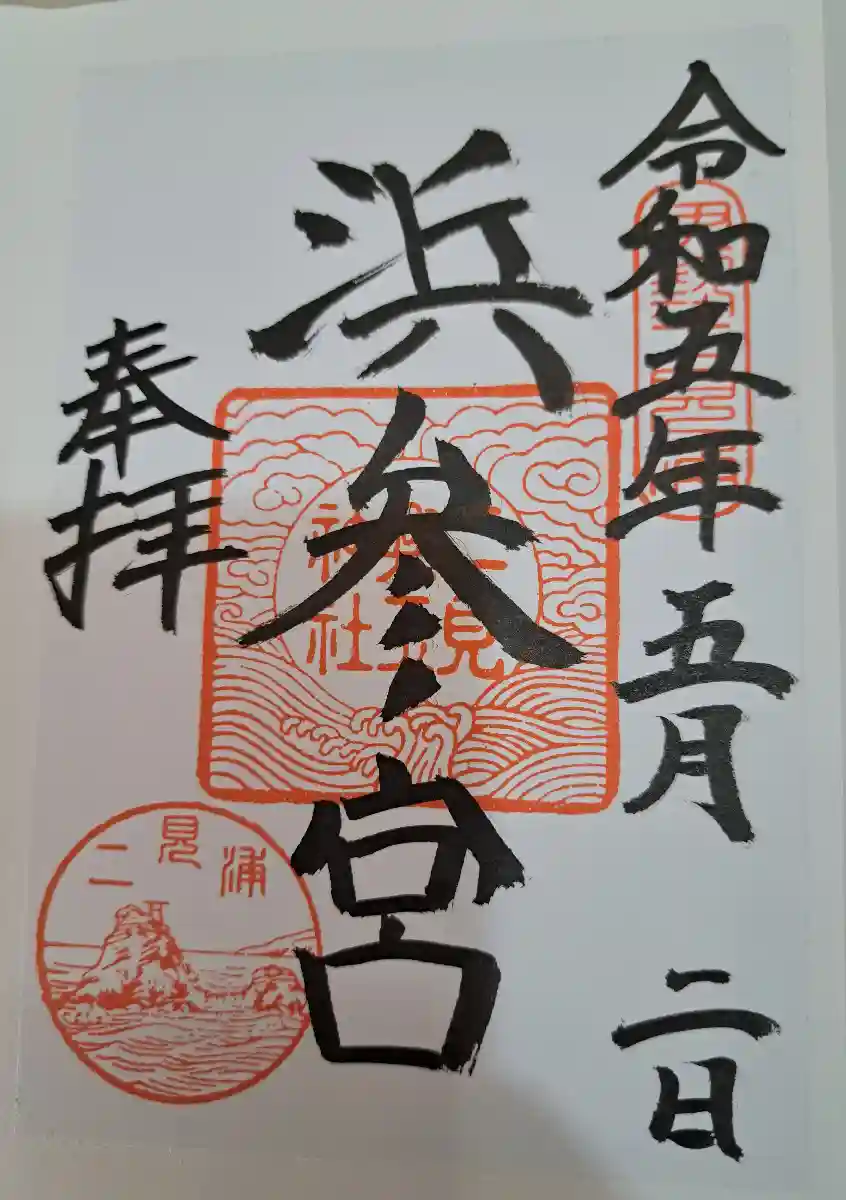 令和五年五月二日
浜参宮
二見興玉神社
奉拝
二見浦